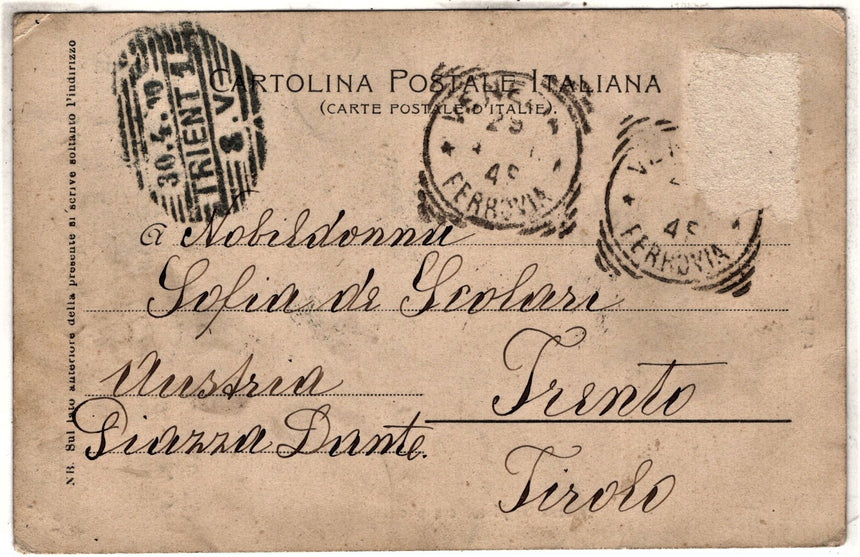 CARTOLINA POSTALE ITALIANA
(CARTE POSTALE D'ITALIE).
TRIENT 1
30.4.10
8.V
29
45
FERROVIA
45
FERROVIA
a Nobildonna
Sofia de Scolari
Austria
Trento
Piazza Dante.
Tirolo
NB. Sul lato anteriore della presente si scrive soltanto l'indirizzo